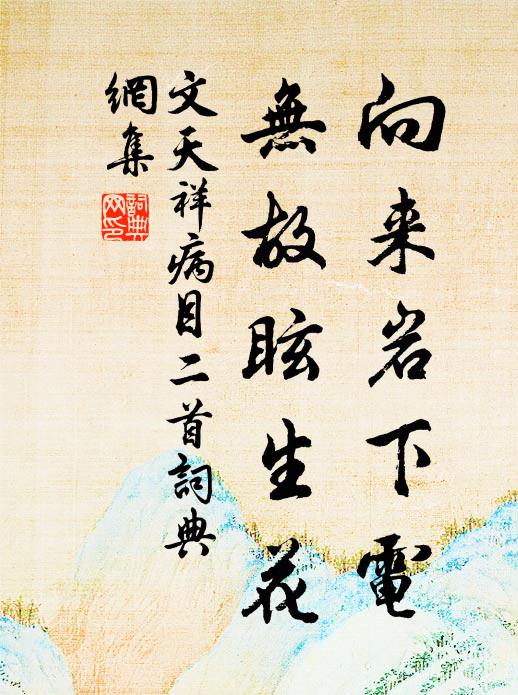 向来岩下電
無故眩生花
文天祥病目二首詞典
網集
詞典
网印